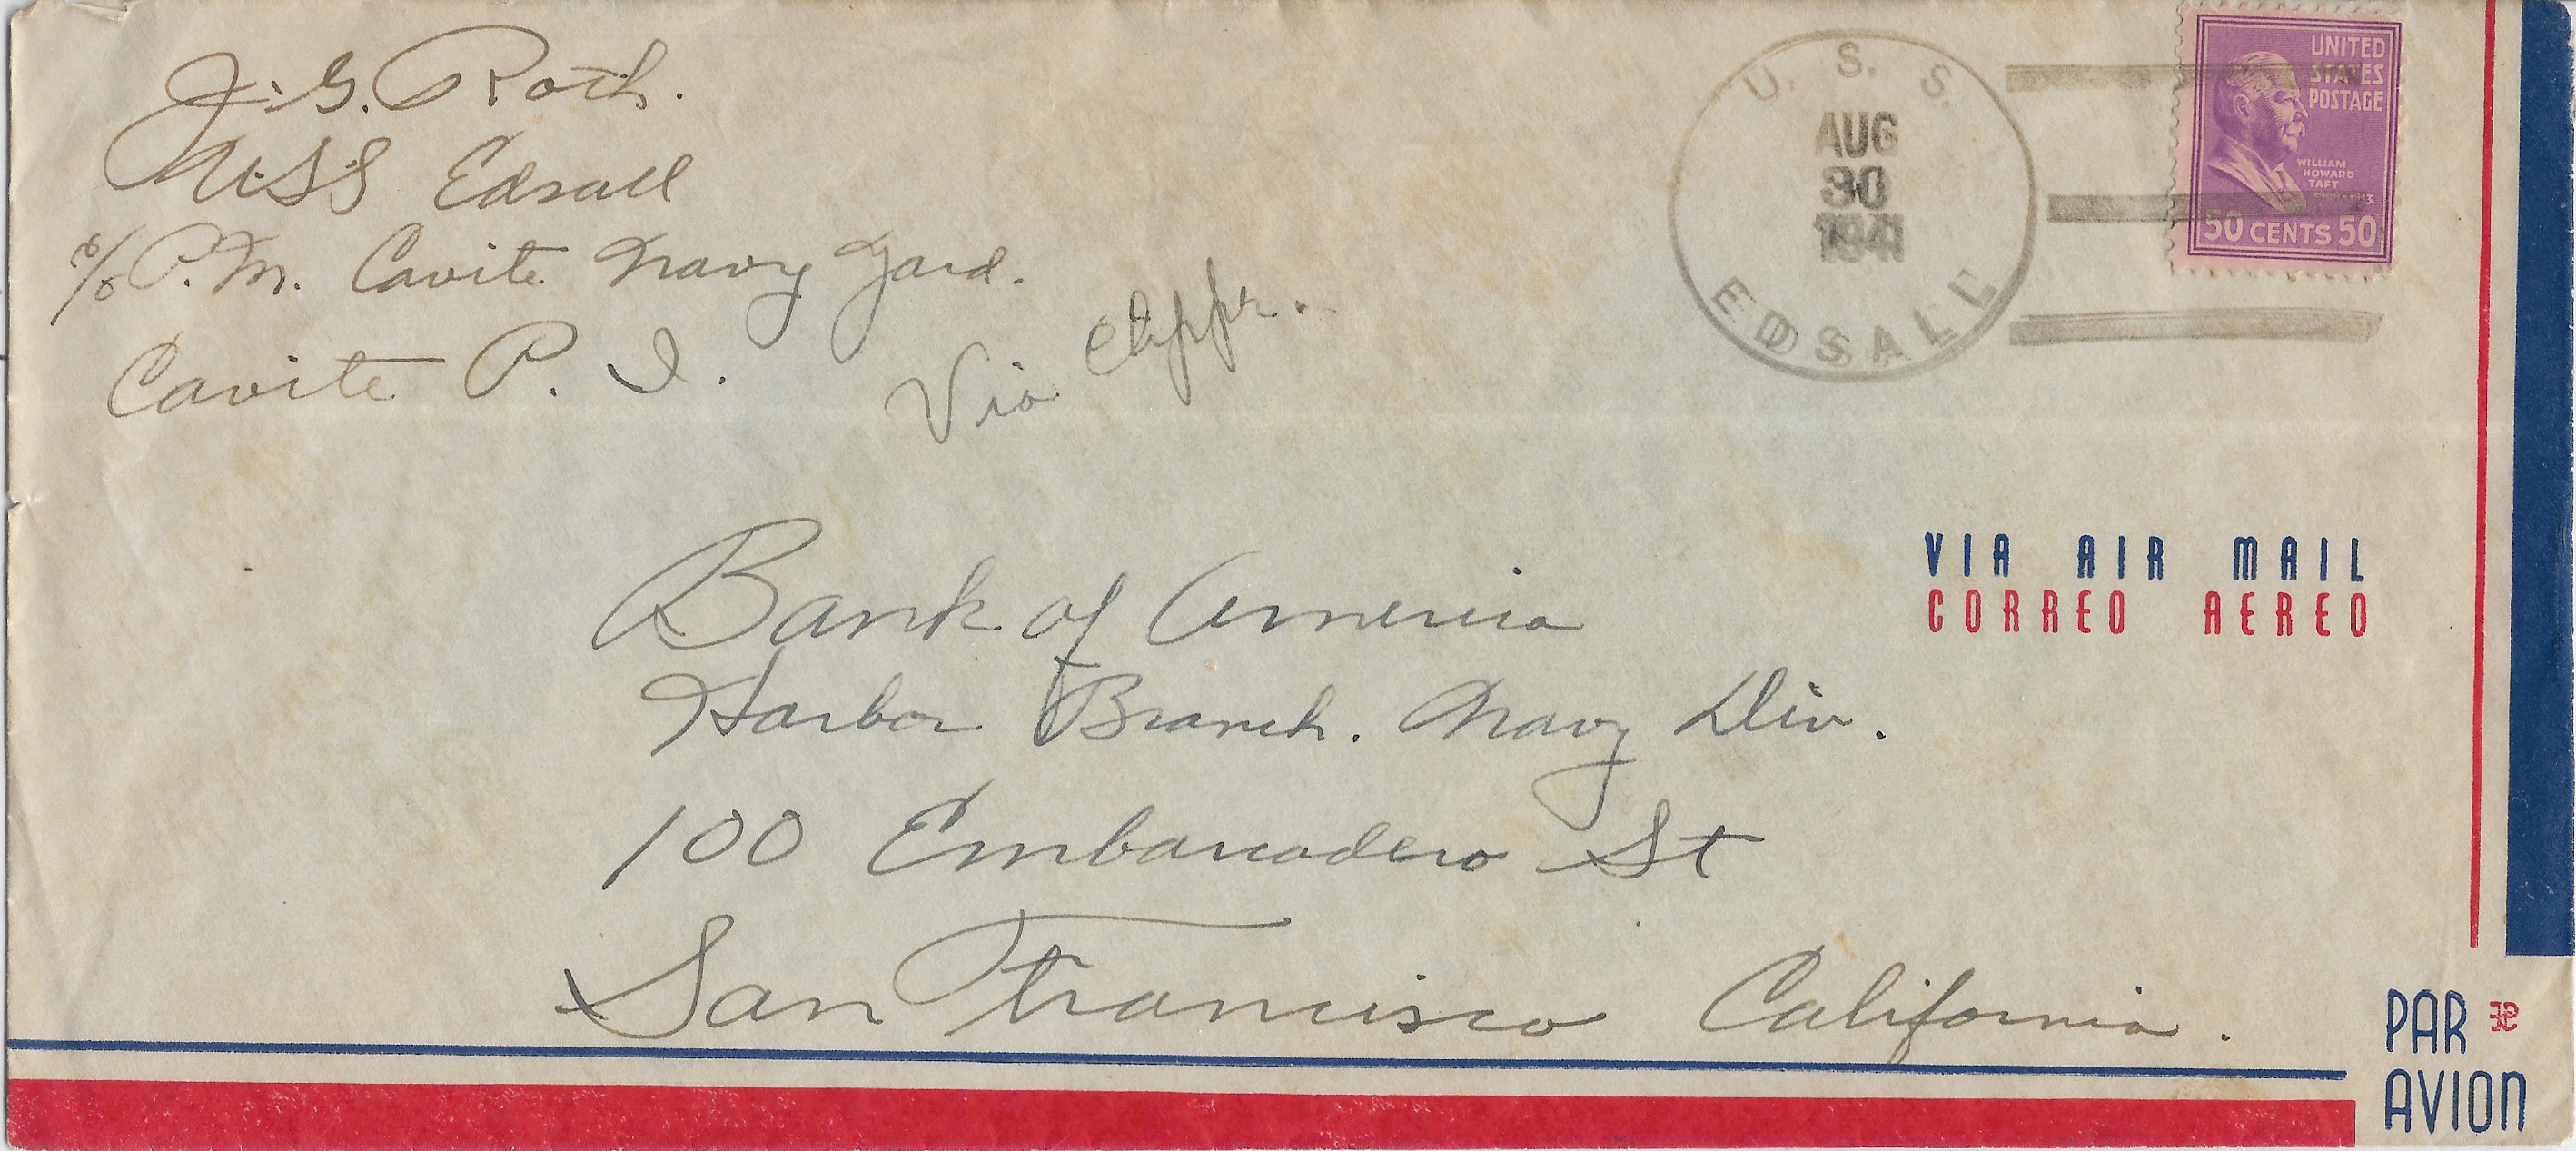 J. G. Roth.
USS Edsall
c/o P. M. Cavite Navy Yard.
Cavite P. I.
Via Clippr.
U. S. S.
AUG
30
1941
EDSALL
UNITED
STATES
POSTAGE
WILLIAM
HOWARD
TAFT
50 CENTS 50
VIA AIR MAIL
CORREO AEREO
Bank of America
Harbor Branch. Navy Div.
100 Embarcadero St
San Francisco California.
PAR
AVION